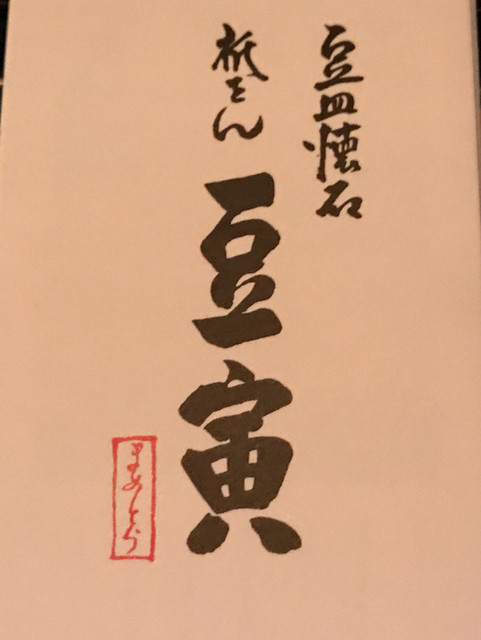 豆皿懐石
祇をん
豆寅
まめとら